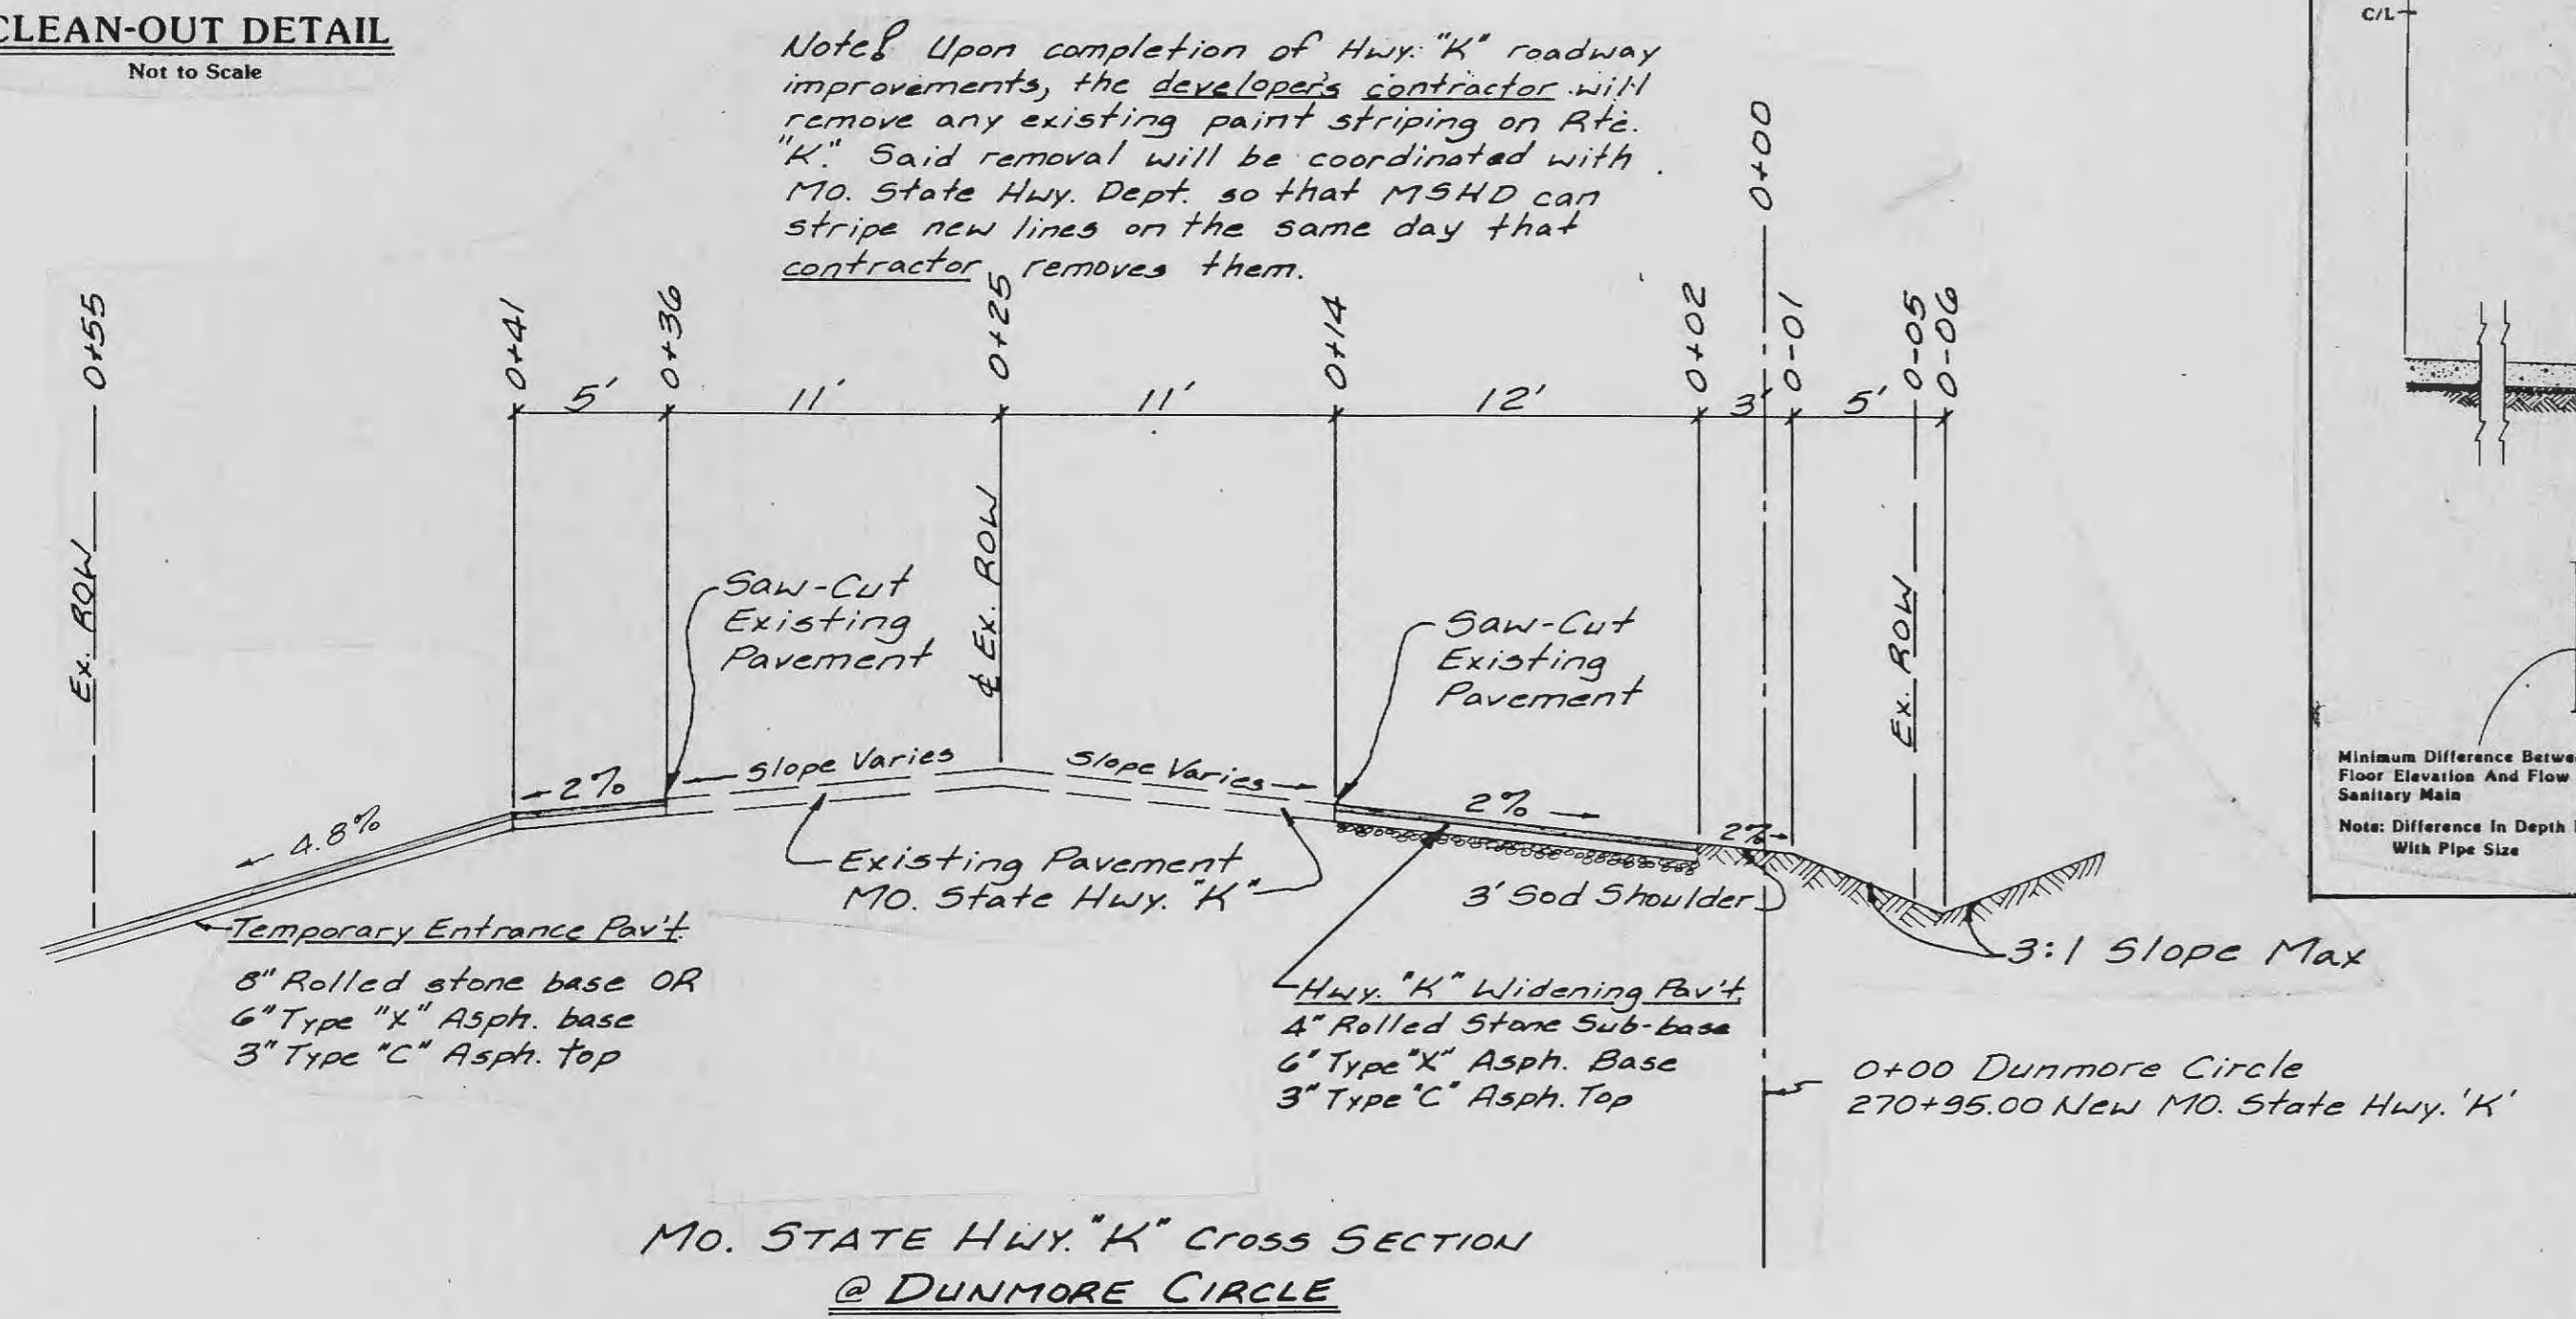 CLEAN-OUT DETAIL
Not to Scale
Note: Upon completion of Hwy. "K" roadway
improvements, the developer's contractor will
remove any existing paint striping on Rte.
"K." Said removal will be coordinated with
MO. State Hwy. Dept. so that MSHD can
stripe new lines on the same day that
contractor removes them.
C/L
0+55
0+41
0+36
0+25
0+14
0+02
0+00
0-01
0-05
0-06
5'
11'
11'
12'
3'
5'
Ex. ROW
℄ Ex. ROW
Ex. ROW
Saw-Cut
Existing
Pavement
Saw-Cut
Existing
Pavement
4.8%
2%
Slope Varies
Slope Varies
2%
2%
Existing Pavement
MO. State Hwy. "K"
3' Sod Shoulder
3:1 Slope Max
Temporary Entrance Pav't.
8" Rolled stone base OR
6" Type "X" Asph. base
3" Type "C" Asph. top
Hwy. "K" Widening Pav't.
4" Rolled Stone Sub-base
6" Type "X" Asph. Base
3" Type "C" Asph. Top
0+00 Dunmore Circle
270+95.00 New MO. State Hwy. 'K'
MO. STATE HWY. "K" CROSS SECTION
@ DUNMORE CIRCLE
Minimum Difference
Floor Elevation And Flow
Sanitary Main
Note: Difference In Depth
With Pipe Size